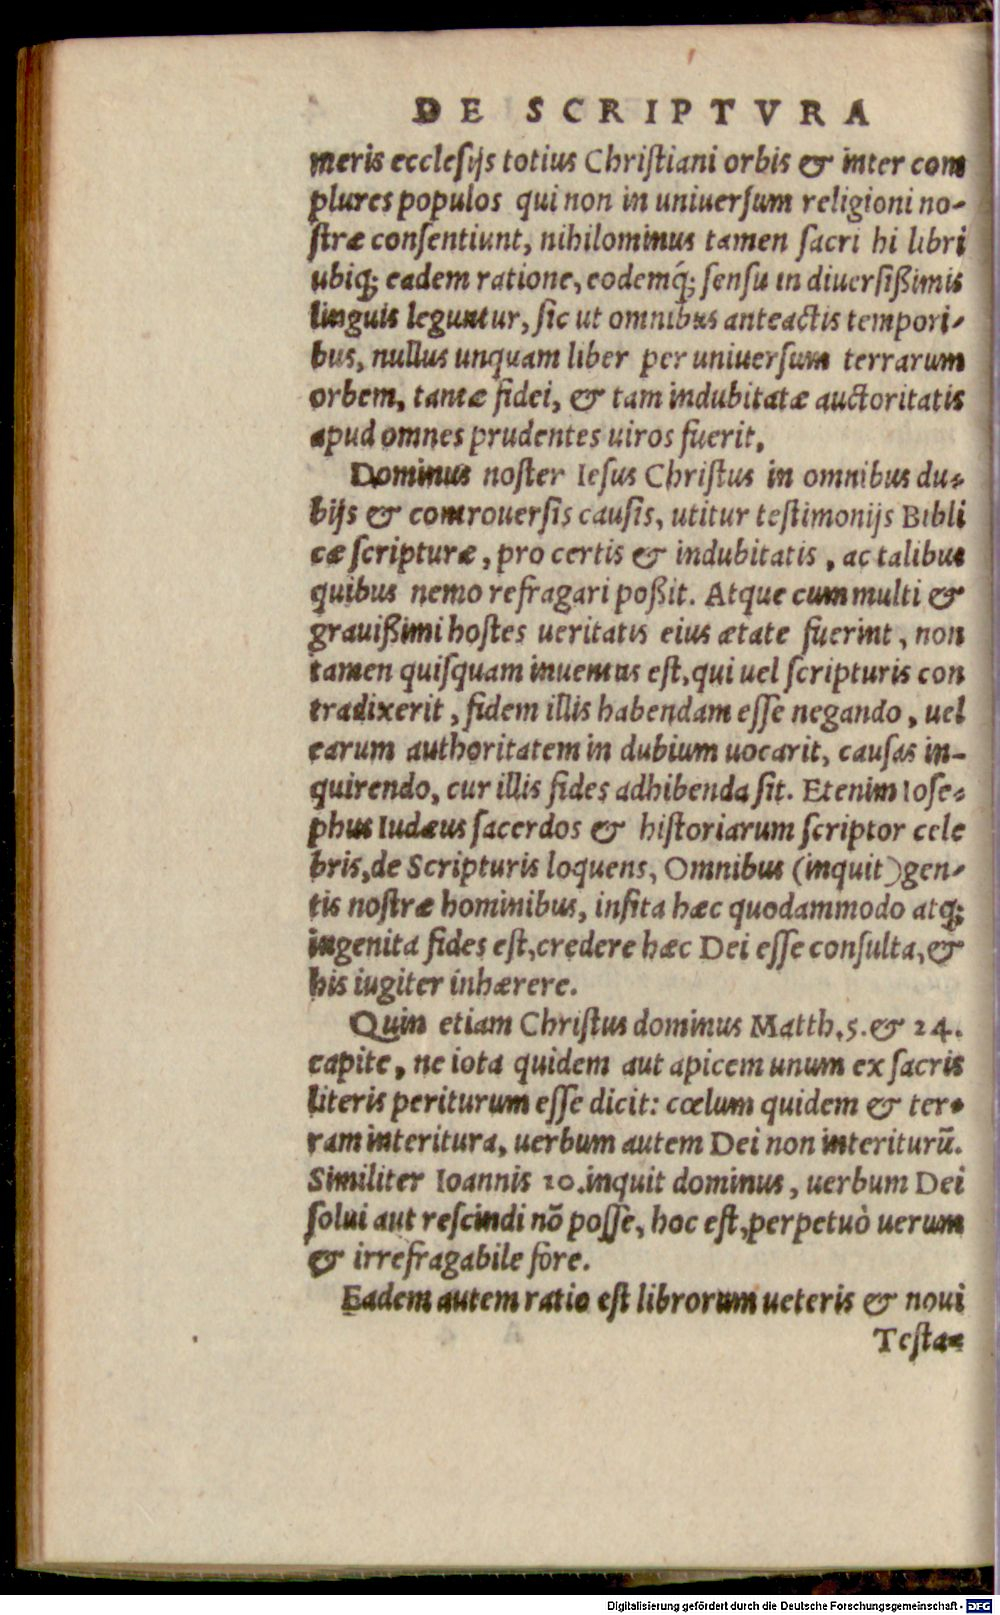 DE SCRIPTVRA
meris ecclesijs totius Christiani orbis & inter com
plures populos qui non in uniuersum religioni no-
stræ consentiunt, nihilominus tamen sacri hi libri
ubiq; eadem ratione, eodemq́; sensu in diuersißimis
linguis leguntur, sic ut omnibus anteactis tempori-
bus, nullus unquam liber per uniuersum terrarum
orbem, tantæ fidei, & tam indubitatæ auctoritatis
apud omnes prudentes uiros fuerit.
Dominus noster Iesus Christus in omnibus du-
bijs & controuersis causis, utitur testimonijs Bibli
cæ scripturæ, pro certis & indubitatis, ac talibus
quibus nemo refragari poßit. Atque cum multi &
grauißimi hostes ueritatis eius ætate fuerint, non
tamen quisquam inuentus est, qui uel scripturis con
tradixerit, fidem illis habendam esse negando, uel
earum authoritatem in dubium uocarit, causas in-
quirendo, cur illis fides adhibenda sit. Etenim Iose-
phus Iudæus sacerdos & historiarum scriptor cele
bris, de Scripturis loquens, Omnibus (inquit) gen-
tis nostræ hominibus, insita hæc quodammodo atq;
ingenita fides est, credere hæc Dei esse consulta, &
his iugiter inhærere.
Quin etiam Christus dominus Matth. 5. & 24.
capite, ne iota quidem aut apicem unum ex sacris
literis periturum esse dicit: cœlum quidem & ter-
ram interitura, uerbum autem Dei non interiturū.
Similiter Ioannis 10. inquit dominus, uerbum Dei
solui aut rescindi nõ posse, hoc est, perpetuò uerum
& irrefragabile fore.
Eadem autem ratio est librorum ueteris & noui
Testa-
Digitalisierung gefördert durch die Deutsche Forschungsgemeinschaft - DFG